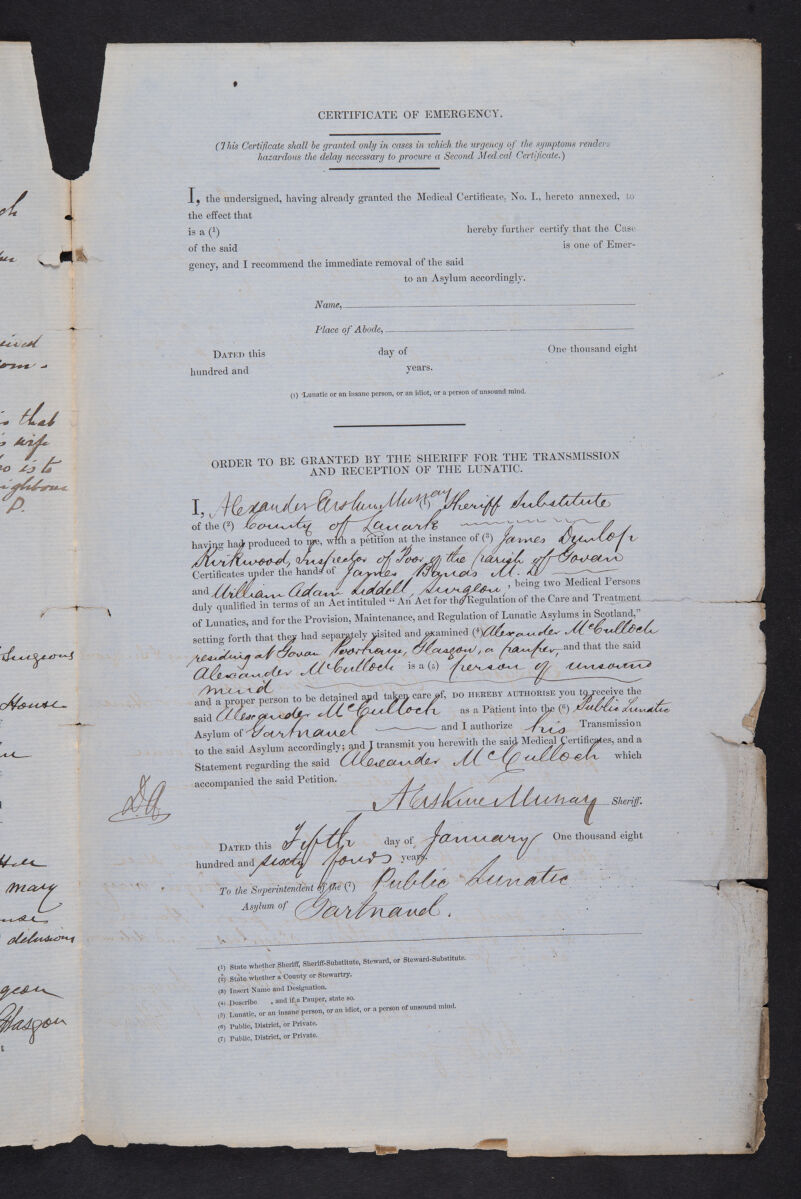 CERTIFICATE OF EMERGENCY.
(This Certificate shall be granted only in cases in which the urgency of the symptoms renders
hazardous the delay necessary to procure a Second Med.cal Certificate.)
I, the undersigned, having already granted the Medical Certificate, No. I., hereto annexed, to
the effect that
is a (1) hereby further certify that the Case
of the said is one of Emer-
gency, and I recommend the immediate removal of the said
to an Asylum accordingly.
Name,
Place of Abode,
DATED this day of One thousand eight
hundred and years.
(1) Lunatic or an insane person, or an idiot, or a person of unsound mind.
ORDER TO BE GRANTED BY THE SHERIFF FOR THE TRANSMISSION
AND RECEPTION OF THE LUNATIC.
I, Alexander Erskine Murray (1) Sheriff Substitute
of the (2) County of Lanark
having had produced to me, with a petition at the instance of (3) James Dunlop
Kirkwood, Inspector of Poor of the parish of Govan
Certificates under the hands of James M.D.
and William Adam Liddell, Surgeon, being two Medical Persons
duly qualified in terms of an Act intituled "An Act for the Regulation of the Care and Treatment
of Lunatics, and for the Provision, Maintenance, and Regulation of Lunatic Asylums in Scotland,"
setting forth that they had separately visited and examined (4) Alexander McCulloch
residing at Govan Poorhouse, Glasgow, a pauper, and that the said
Alexander McCulloch is a (5) person of unsound
mind
and a proper person to be detained and taken care of, DO HEREBY AUTHORISE you to receive the
said Alexander McCulloch as a Patient into the (6) Public Lunatic
Asylum of Gartnavel and I authorize his Transmission
to the said Asylum accordingly; and I transmit you herewith the said Medical Certificates, and a
Statement regarding the said Alexander McCulloch which
accompanied the said Petition.
A Erskine Murray Sheriff.
DATED this Fifth day of January One thousand eight
hundred and sixty four years.
To the Superintendent of the (7) Public Lunatic
Asylum of Gartnavel.
(1) State whether Sheriff, Sheriff-Substitute, Steward, or Steward-Substitute.
(2) State whether a County or Stewartry.
(3) Insert Name and Designation.
(4) Describe , and if a Pauper, state so.
(5) Lunatic, or an insane person, or an idiot, or a person of unsound mind.
(6) Public, District, or Private.
(7) Public, District, or Private.
that
wife
is to
Surgeons
House
Mary
delusions
Glasgow